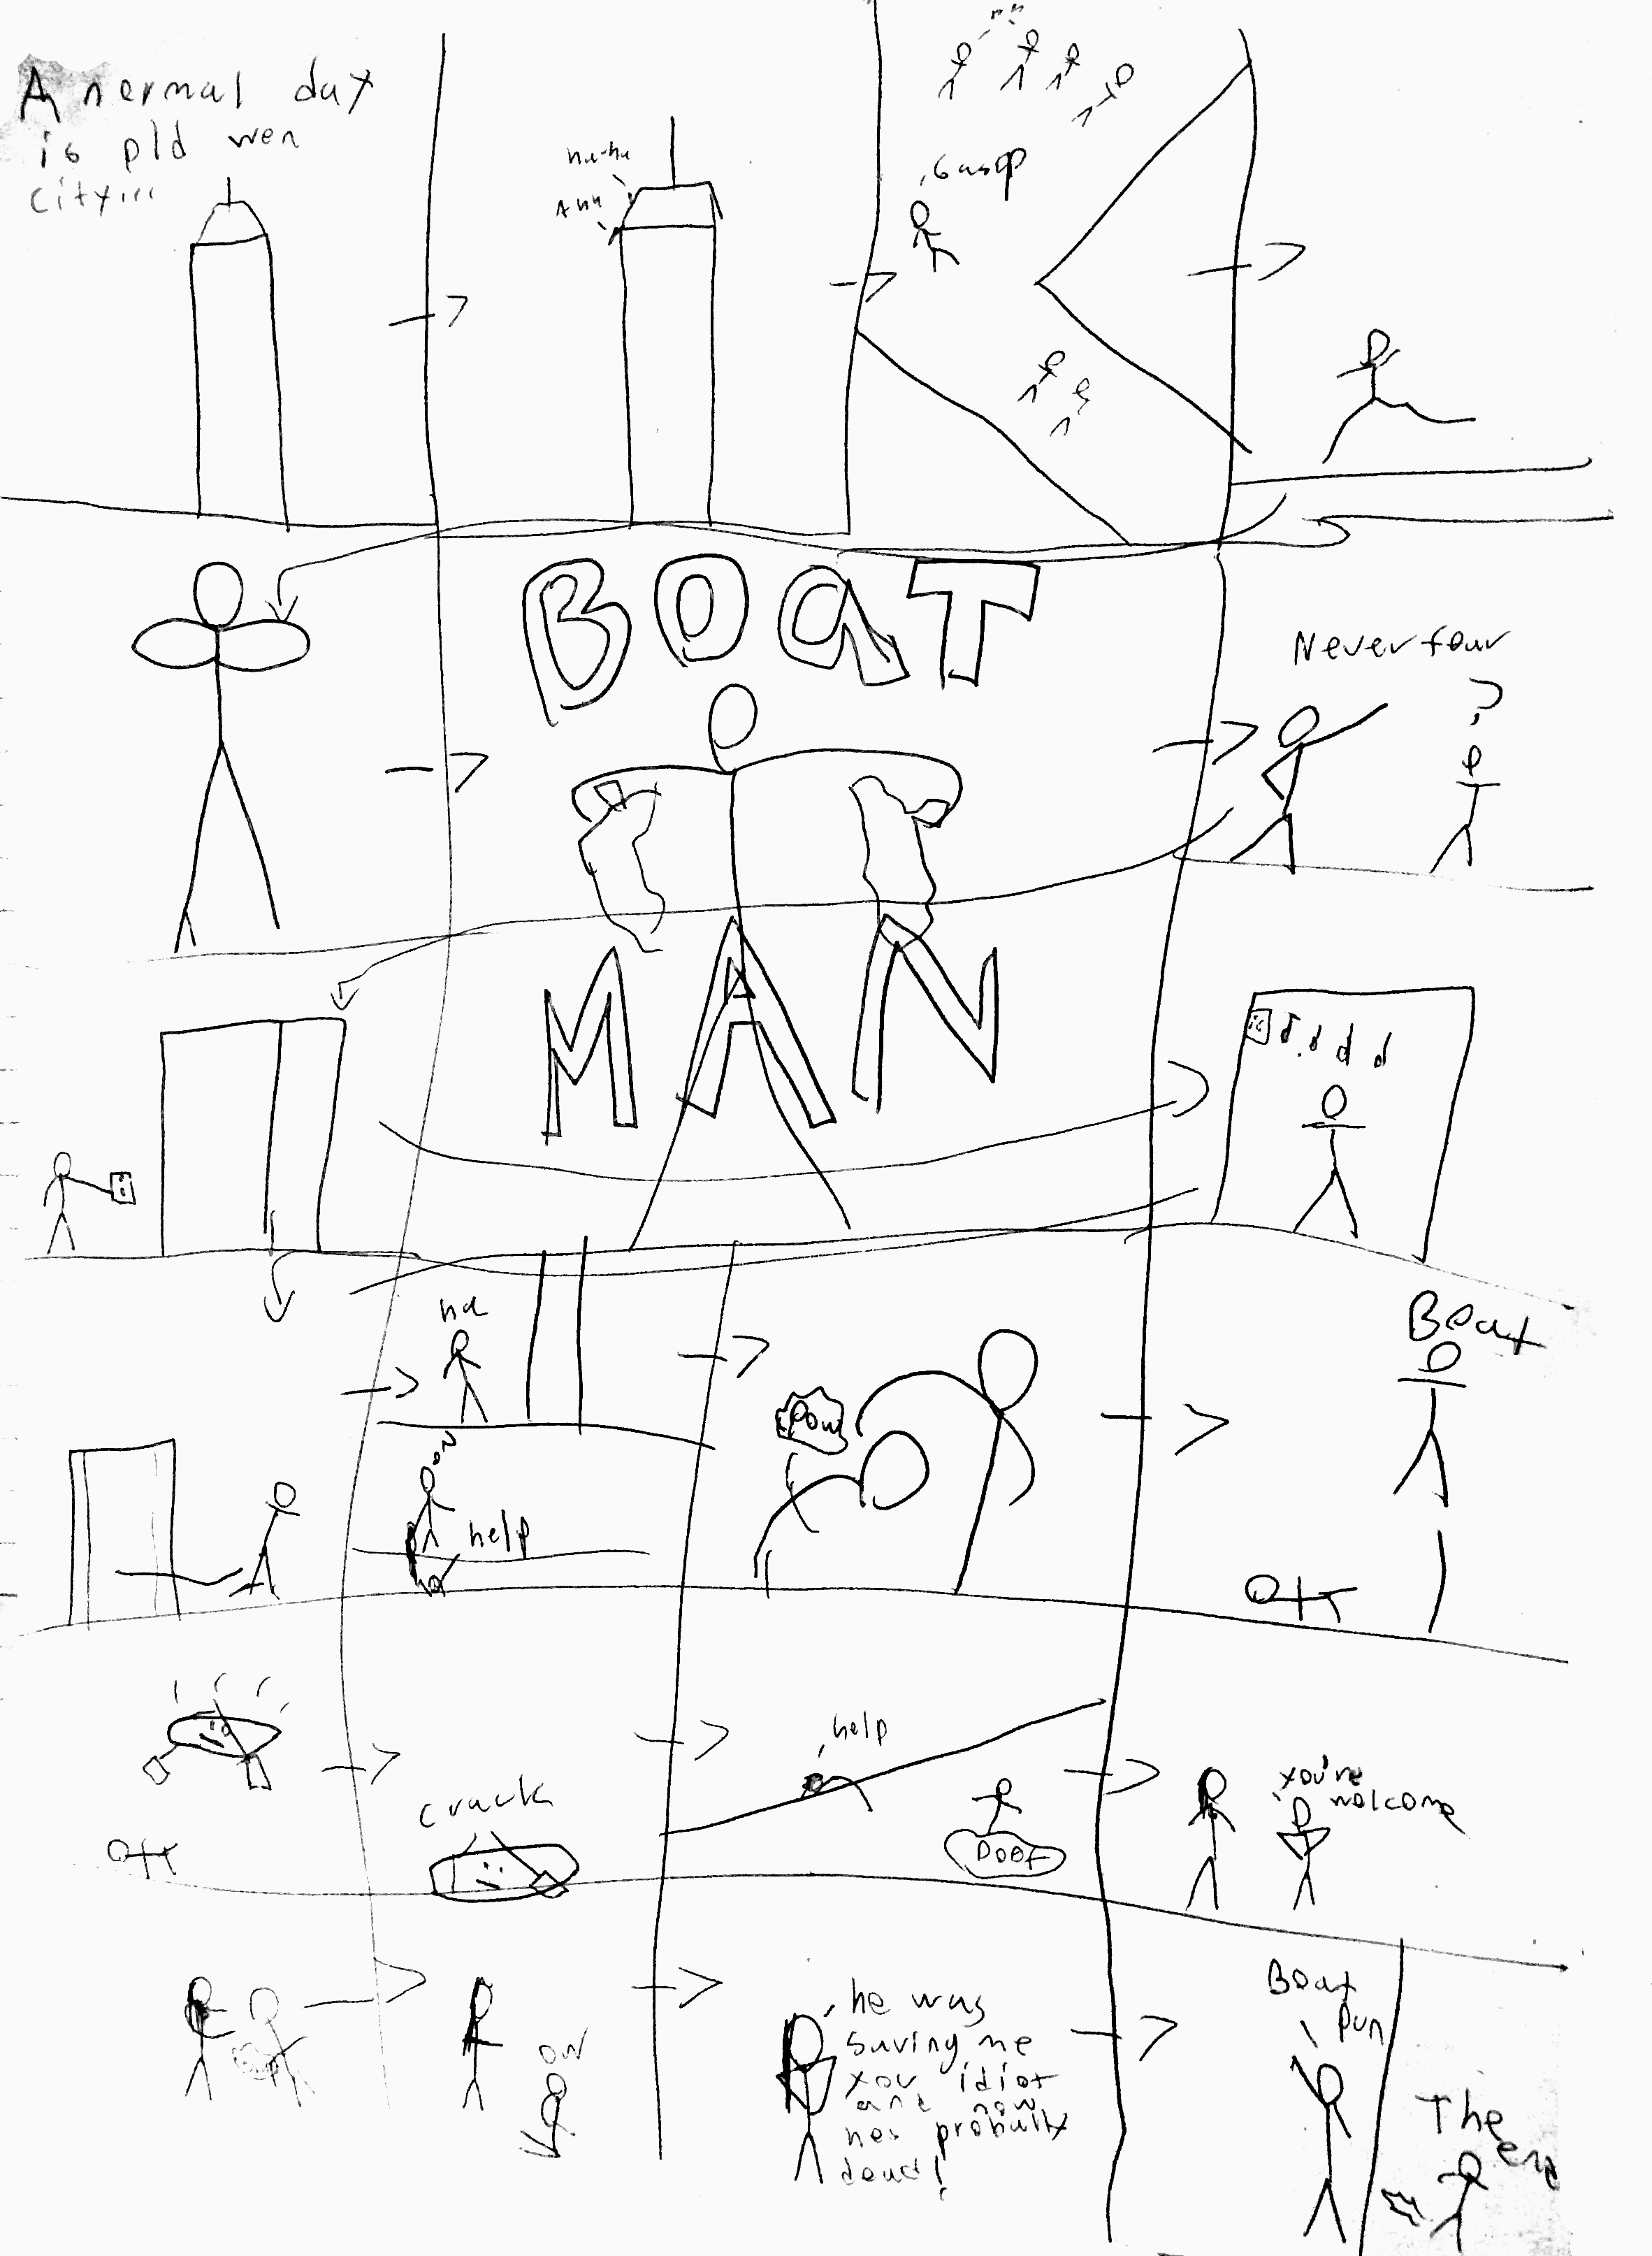 A nermal day
is pld wen
city...
ha-ha
Gasp
BOaT
MAN
Never fear
?
ha
ow
help
Pow
Boat
crack
help
Poof
you're
welcome
ow
he was
saving me
you idiot
and now
hes probally
dead!
Boat
pun
The
end